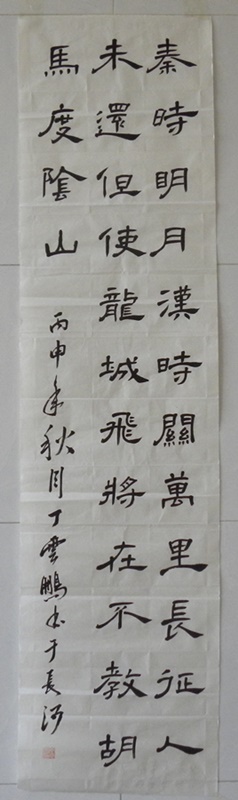 秦時明月漢時關萬里長征人
未還但使龍城飛將在不教胡
馬度陰山
丙申年秋月丁雲鵬书于長沙